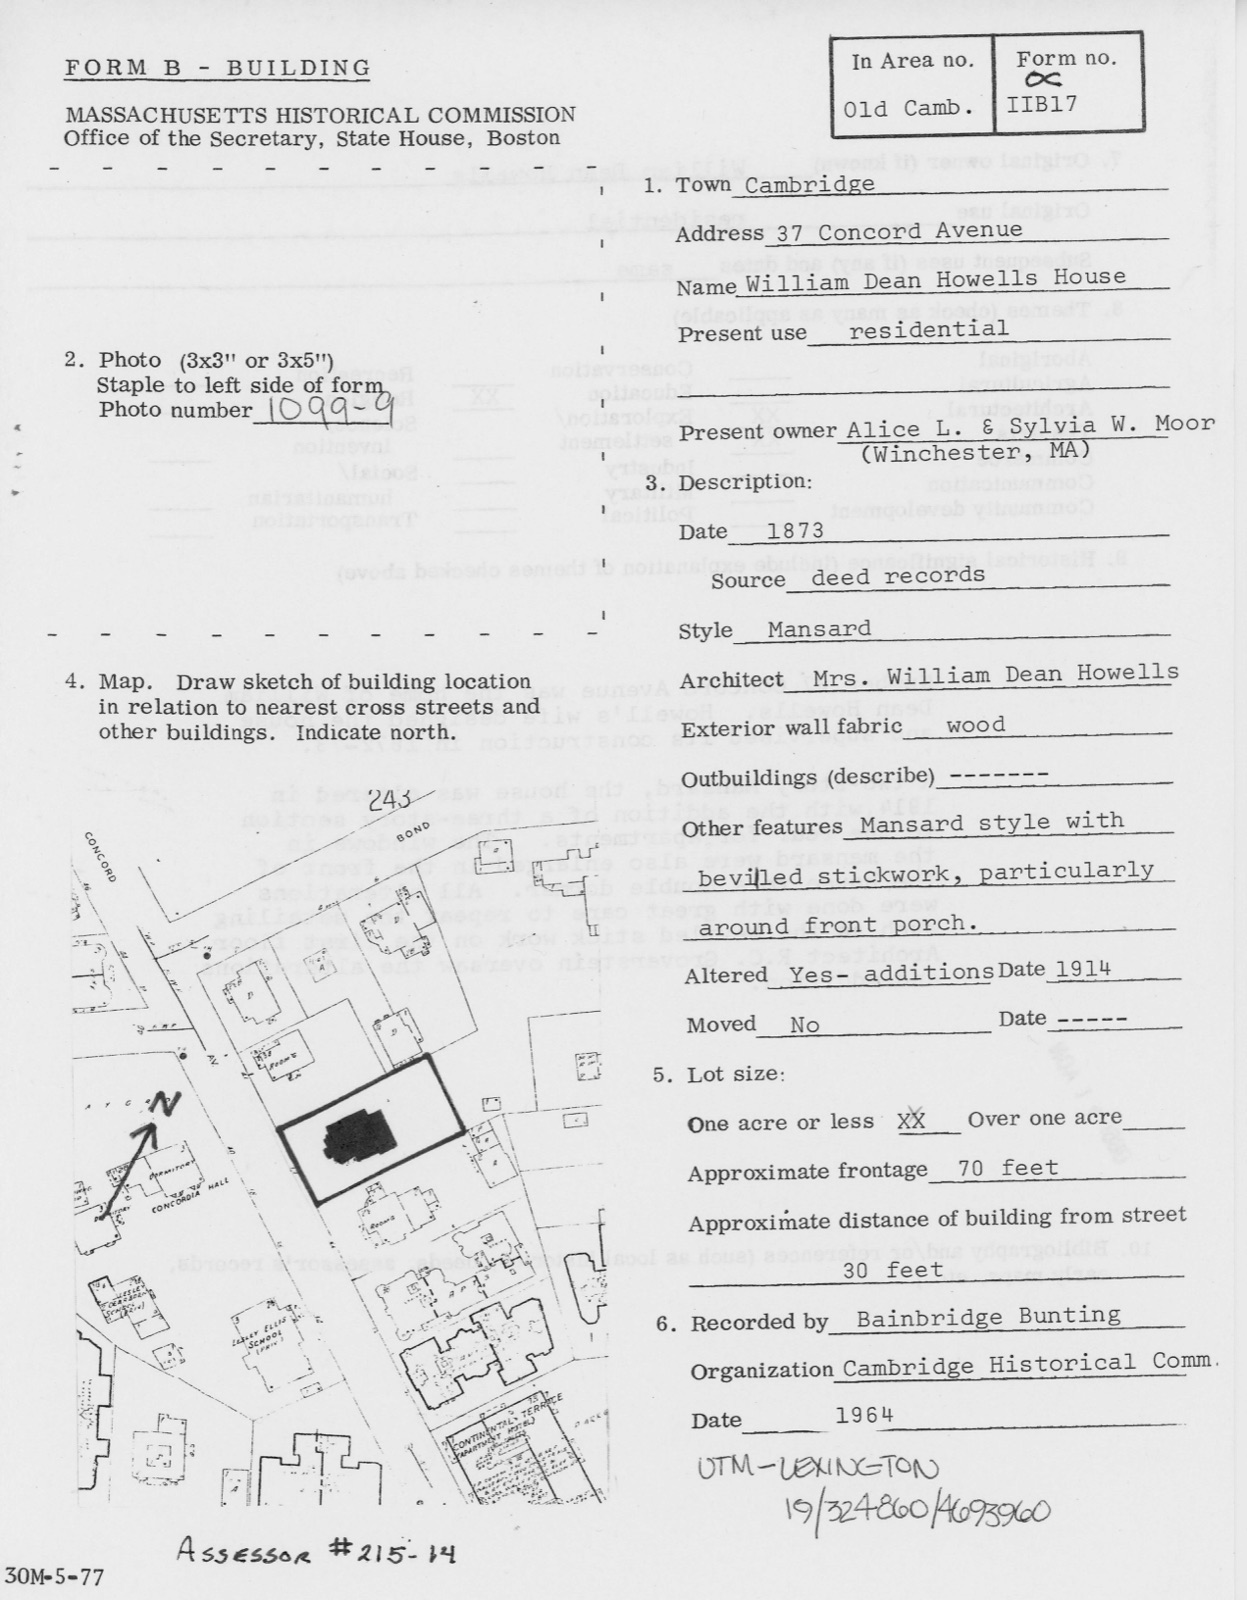 FORM B - BUILDING
In Area no.
Form no.
Old Camb.
IIB17
MASSACHUSETTS HISTORICAL COMMISSION
Office of the Secretary, State House, Boston
1. Town Cambridge
Address 37 Concord Avenue
Name William Dean Howells House
Present use residential
Present owner Alice L. & Sylvia W. Moor
(Winchester, MA)
2. Photo (3x3" or 3x5")
Staple to left side of form
Photo number 1099-9
3. Description:
Date 1873
Source deed records
Style Mansard
Architect Mrs. William Dean Howells
Exterior wall fabric wood
Outbuildings (describe) -------
Other features Mansard style with
bevilled stickwork, particularly
around front porch.
Altered Yes- additions Date 1914
Moved No Date -----
4. Map. Draw sketch of building location
in relation to nearest cross streets and
other buildings. Indicate north.
243
CONCORD
BOND
AV.
ROOMS
N
DORMITORY
CONCORDIA HALL
ROOMS
LESLEY ELLIS
SCHOOL
CONTINENTAL TERRACE
5. Lot size:
One acre or less XX Over one acre
Approximate frontage 70 feet
Approximate distance of building from street
30 feet
6. Recorded by Bainbridge Bunting
Organization Cambridge Historical Comm.
Date 1964
UTM-LEXINGTON
19/324860/4693960
ASSESSOR #215-14
30M-5-77